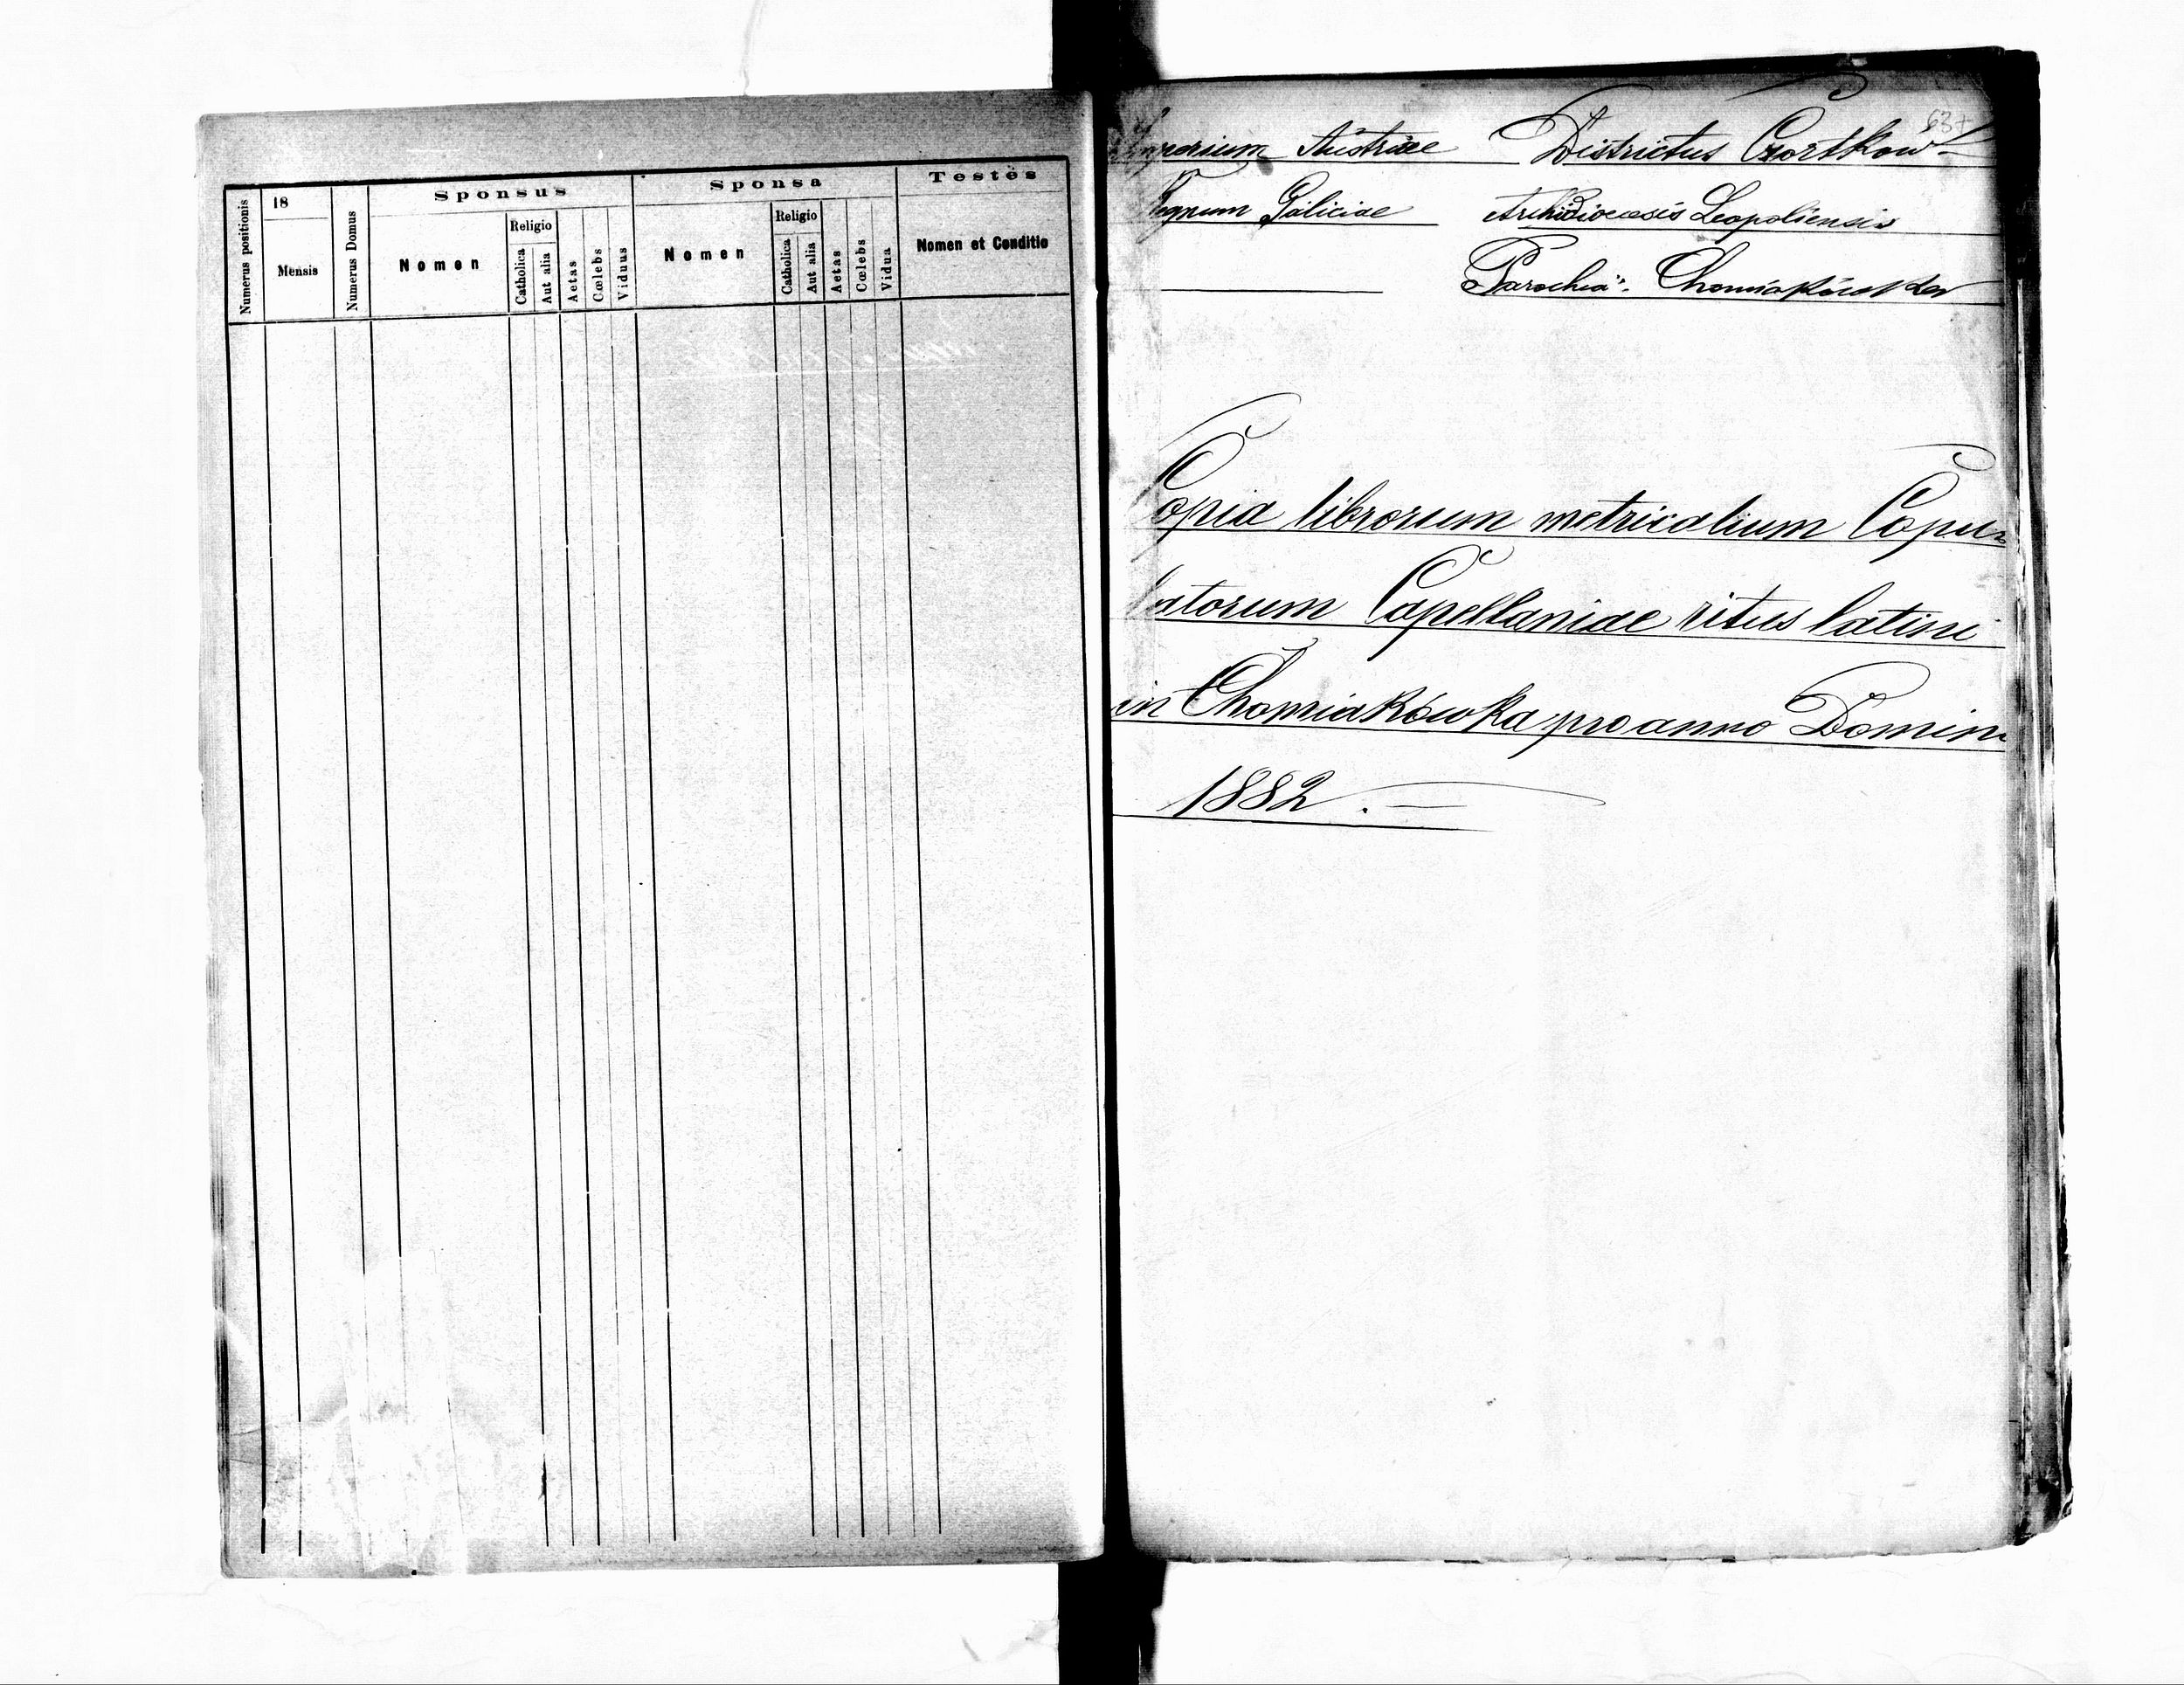 Sponsus Sponsa Testes
Numerus positionis
18
Mensis
Numerus Domus
Nomen
Religio
Catholica
Aut alia
Aetas
Cœlebs
Viduus
Nomen
Religio
Catholica
Aut alia
Aetas
Cœlebs
Vidua
Nomen et Conditio
Imperium Austriae Districtus Czortków
Regnum Galiciae Archidiocesis Leopoliensis
Parochia: Chomiakówka
Copia librorum metricalium Copu-
latorum Capellaniae ritus latini
in Chomiakówka pro anno Domini
1882.